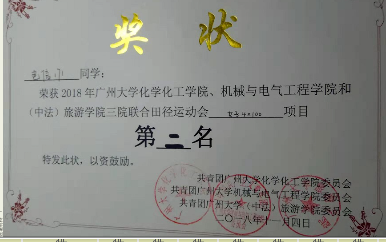 奖 状
同学:
荣获2018年广州大学化学化工学院、机械与电气工程学院和
(中法)旅游学院三院联合田径运动会 女子4×100 项目
第 二 名
特发此状,以资鼓励。
共青团广州大学化学化工学院委员会
共青团广州大学机械与电气工程学院委员会
共青团广州大学(中法)旅游学院委员会
二〇一八年十一月四日